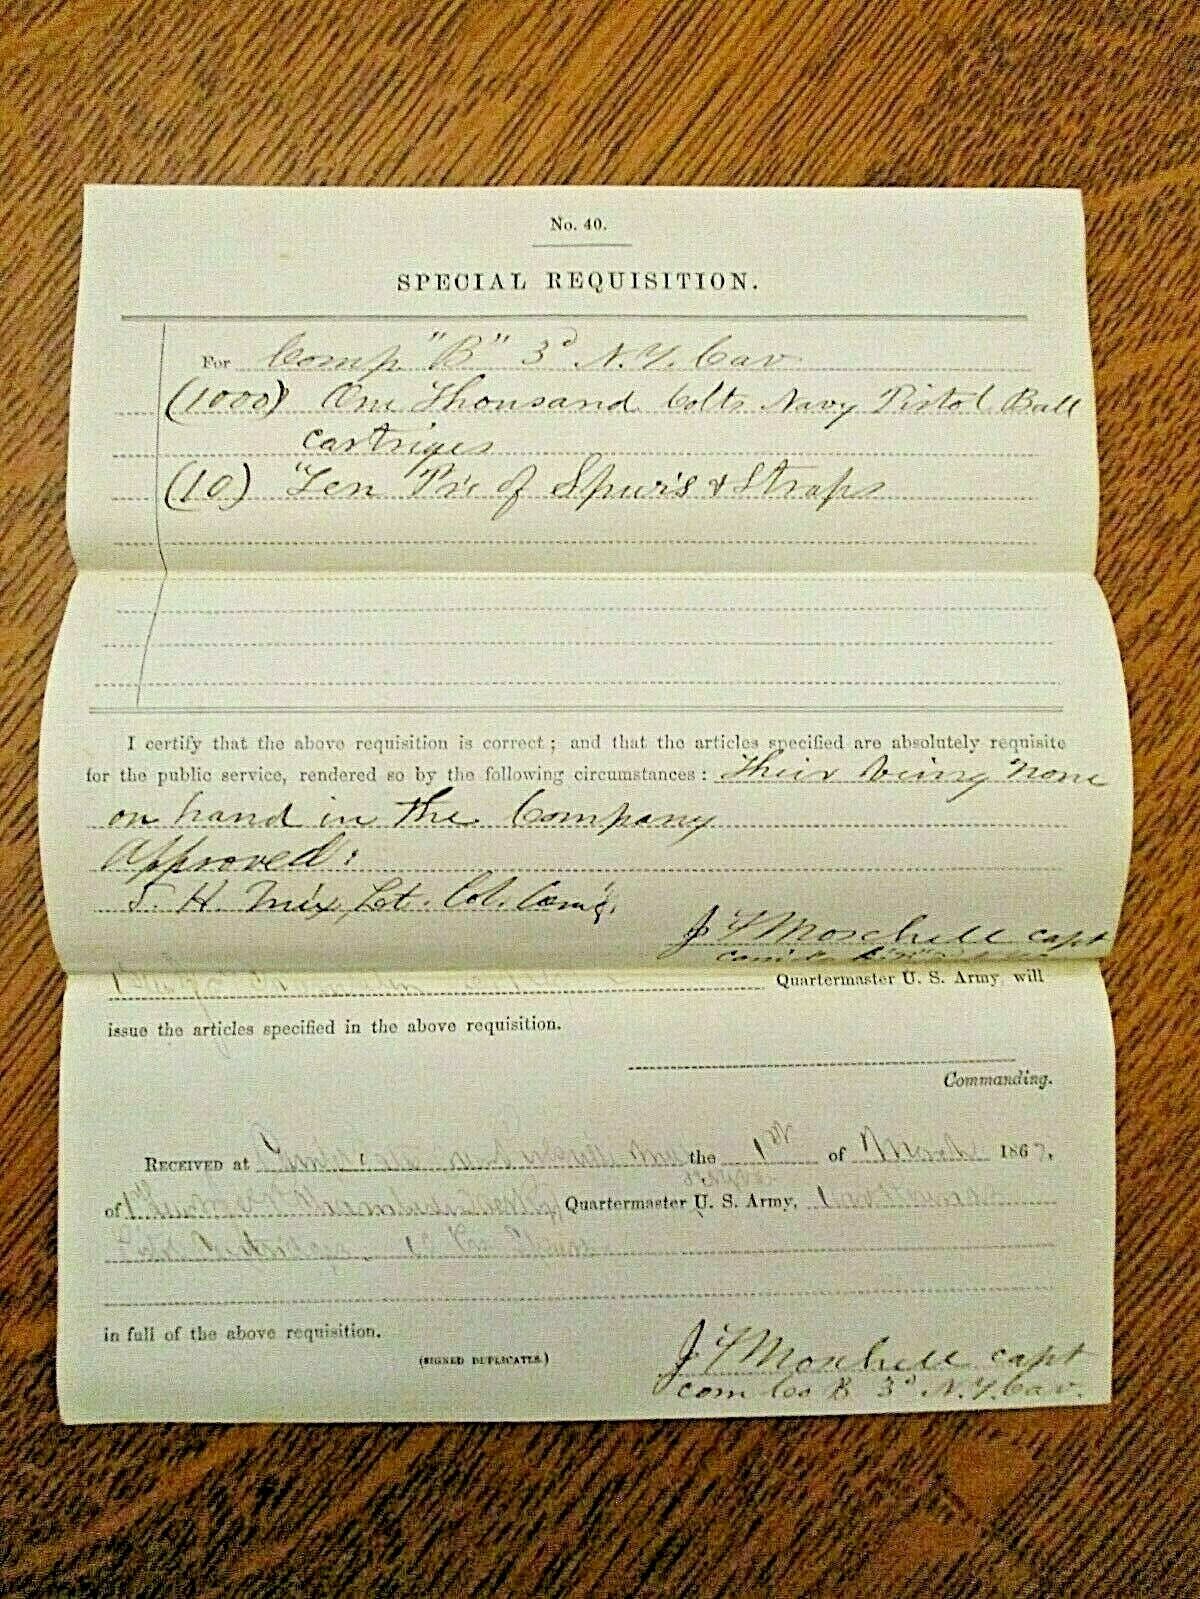 No. 40.
SPECIAL REQUISITION.
For Comp "B" 3d N.Y. Cav
(1000) One Thousand Colts Navy Pistol Ball
Cartriges
(10) Ten Prs of Spurs & Straps
I certify that the above requisition is correct; and that the articles specified are absolutely requisite
for the public service, rendered so by the following circumstances: Their being none
on hand in the Company
Approved:
S. H. Mix Lt. Col. Com'g.
J F Moschell capt
Quartermaster U. S. Army, will
issue the articles specified in the above requisition.
Commanding.
RECEIVED at the 1st of March 1863,
of Quartermaster U. S. Army,
in full of the above requisition.
(SIGNED DUPLICATES.)
J F Moschell capt
com Co B 3d N.Y. Cav.